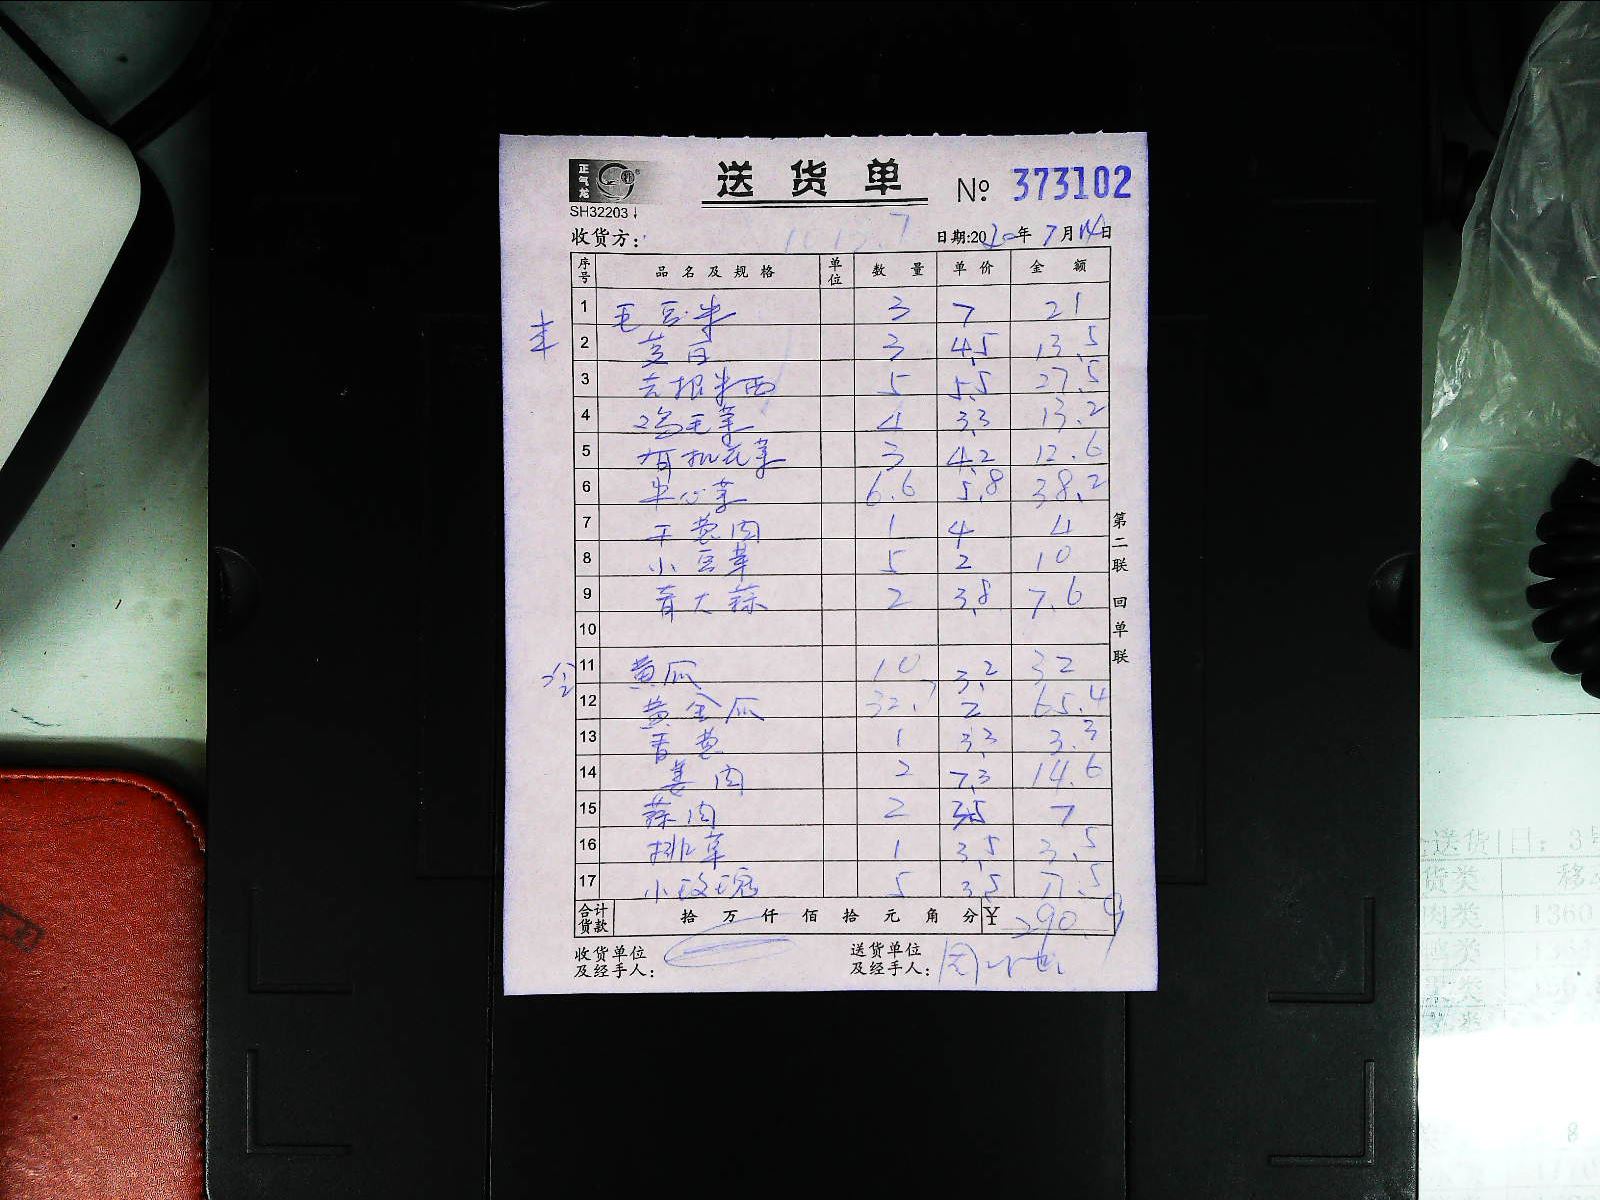 正气龙
送货单 № 373102
SH32203
收货方: 日期:2020年7月14日
序号 品名及规格 单位 数量 单价 金额
1 毛豆米 3 7 21
2 茭白 3 4.5 13.5
3 去根米西 5 5.5 27.5
4 鸡毛菜 4 3.3 13.2
5 有机花菜 3 4.2 12.6
6 牛心菜 6.6 5.8 38.2
7 干葱肉 1 4 4
8 小豆芽 5 2 10
9 青大蒜 2 3.8 7.6
10
11 黄瓜 10 3.2 32
12 黄金瓜 32.7 2 65.4
13 香葱 1 3.3 3.3
14 姜肉 2 7.3 14.6
15 蒜肉 2 3.5 7
16 排草 1 3.5 3.5
17 小玫瑰 5 3.5 17.5
合计货款 拾 万 仟 佰 拾 元 角 分 ¥ 290.9
收货单位 送货单位
及经手人: 及经手人:
第二联 回单联
送货日: 3号
货类
肉类 1360